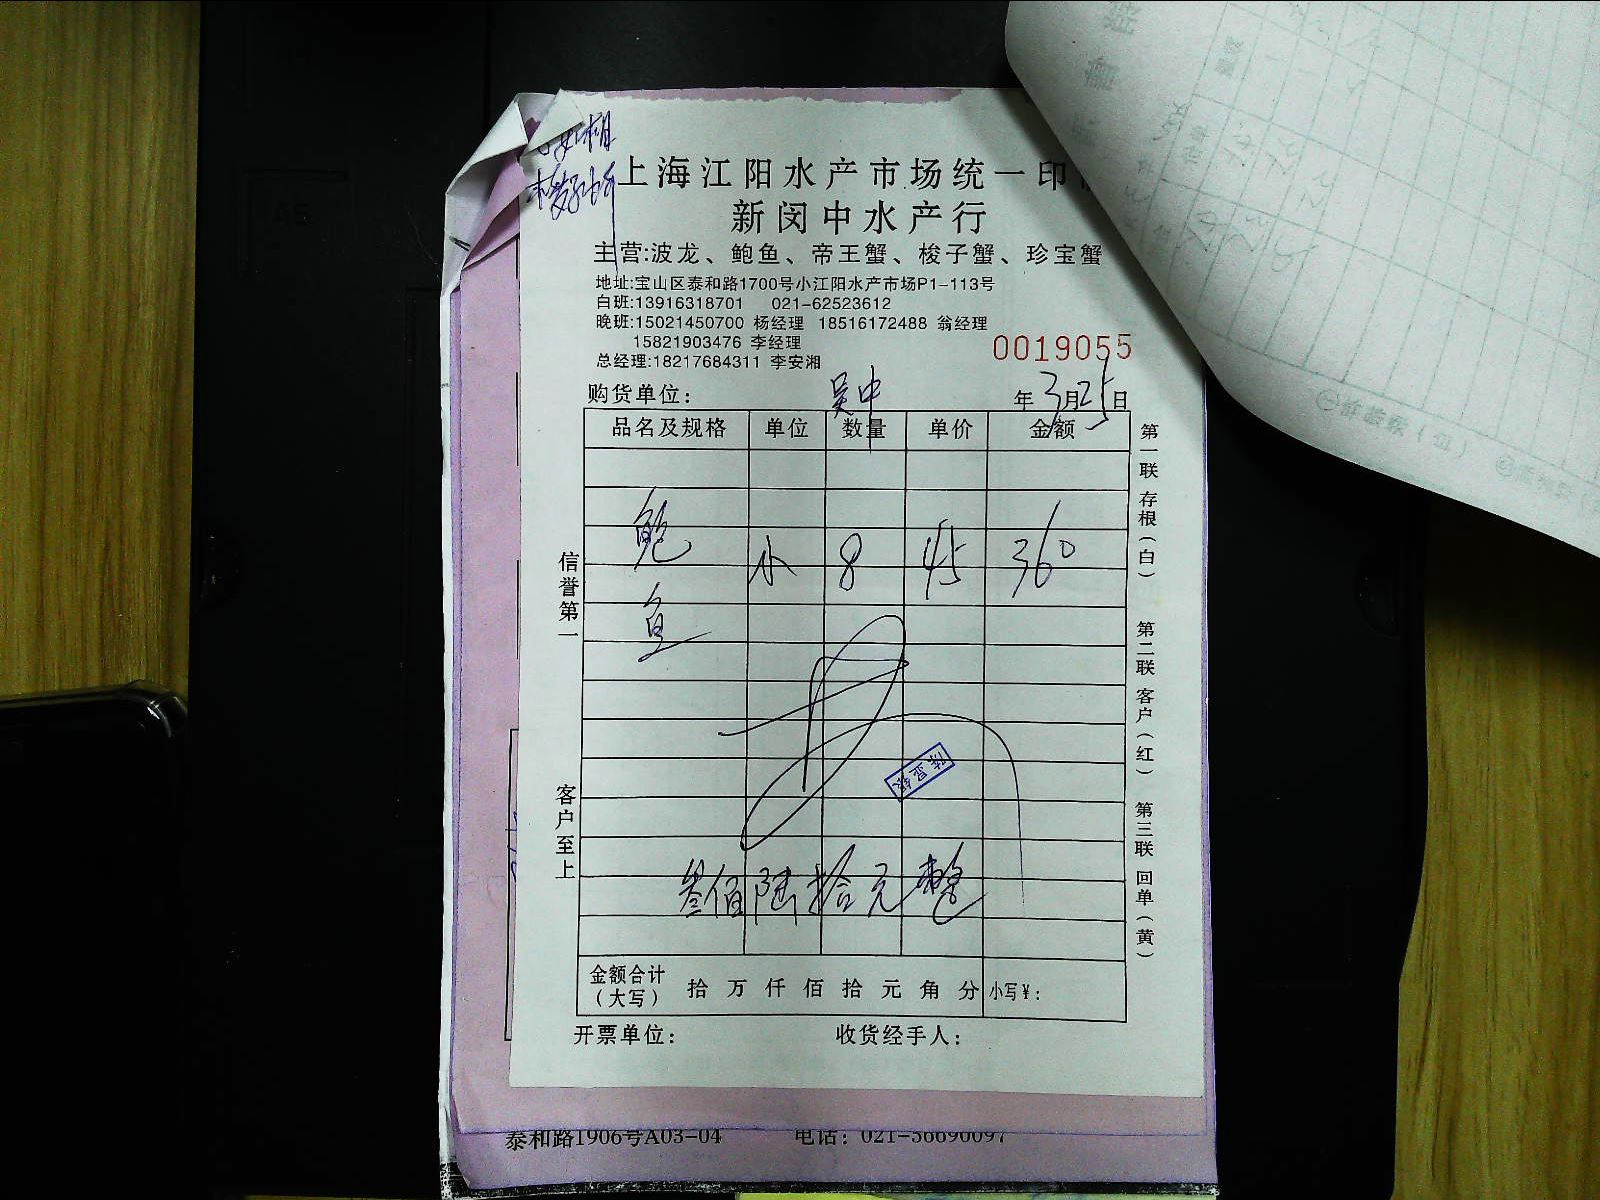 上海江阳水产市场统一印
新闵中水产行
主营:波龙、鲍鱼、帝王蟹、梭子蟹、珍宝蟹
地址:宝山区泰和路1700号小江阳水产市场P1-113号
白班:13916318701 021-62523612
晚班:15021450700 杨经理 18516172488 翁经理
15821903476 李经理
总经理:18217684311 李安湘
0019055
购货单位: 吴中 年3月25日
品名及规格 单位 数量 单价 金额
鲍鱼 小 8 45 360
叁佰陆拾元整
金额合计(大写) 拾万仟佰拾元角分 小写¥:
开票单位: 收货经手人:
信誉第一 客户至上
第一联 存根(白) 第二联 客户(红) 第三联 回单(黄)
泰和路1906号A03-04 电话: 021-56690097